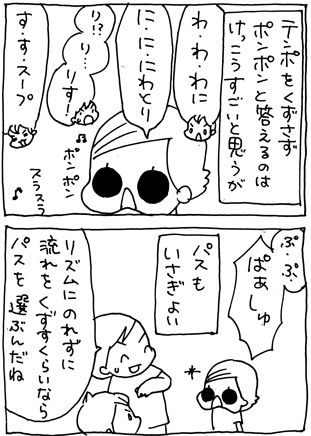 テンポをくずさず
ポンポンと答えるのは
けっこうすごいと思うが
わ・わ・わに
に・に・にわとり
り!?
り…
りすー!
す・す・スープ
♪
ポンポン
スラスラ
♪
ぷ・ぷ・
ぱあしゅ
パスも
いさぎよい
リズムにのれずに
流れをくずすくらいなら
パスを選ぶんだね